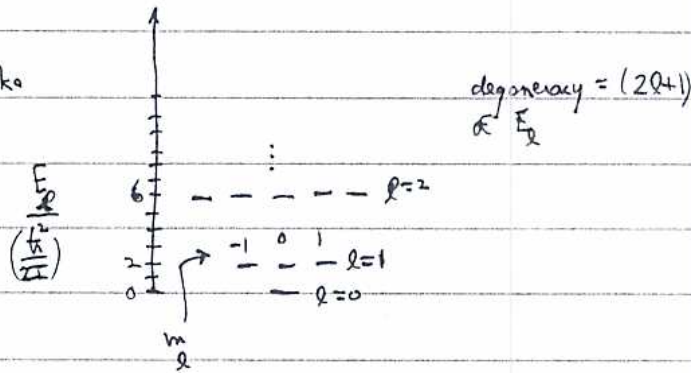 degeneracy = (2l+1)
of E_l
⋮
E_l / (ħ²/2I)
6
l=2
-1 0 1
2
l=1
0
l=0
m_l